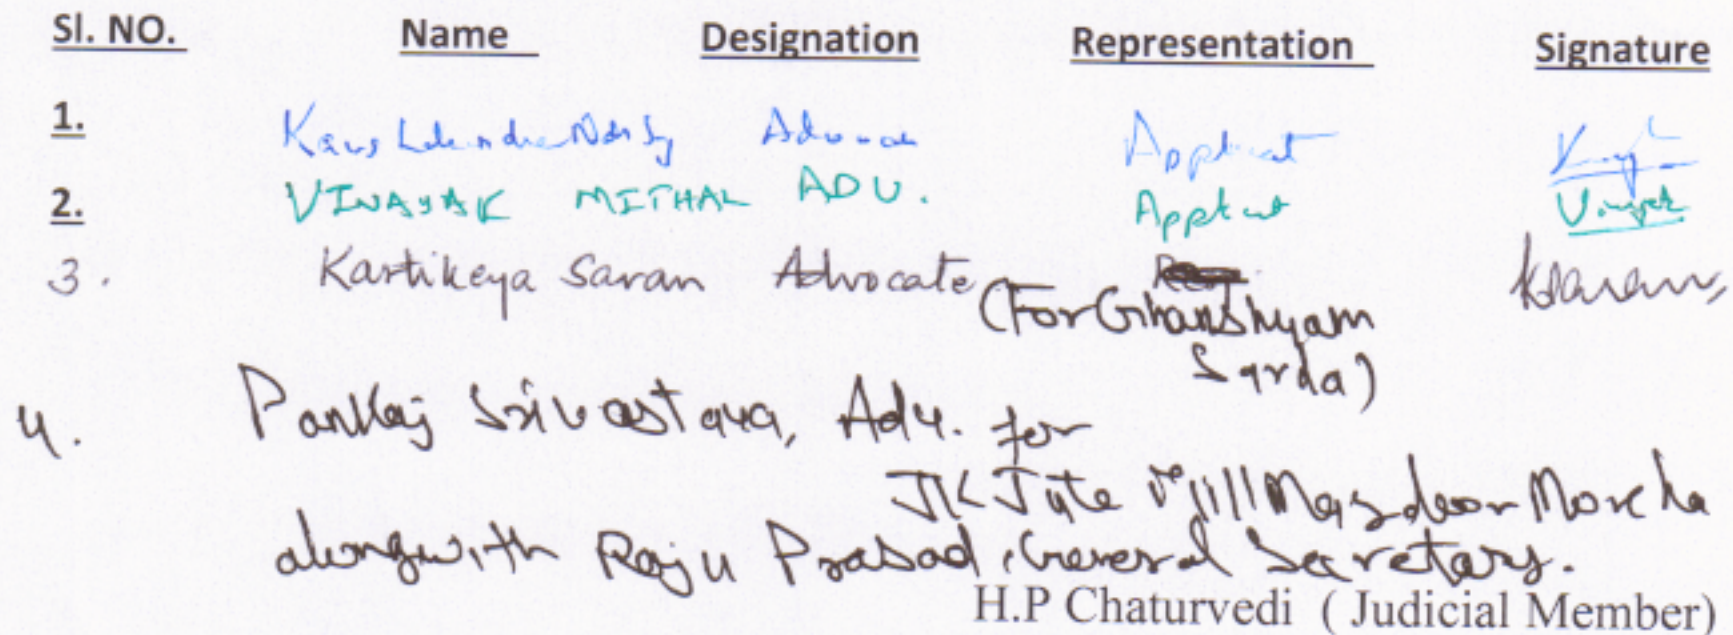 Sl. NO. Name Designation Representation Signature
1. Advocate Applicant
2. VINAYAK MITHAL ADV. Applicant Vinayak
3. Kartikeya Saran Advocate KSaran,
(For Ghanshyam
Sarda)
4. Pankaj Srivastava, Adv. for
JK Jute Mill Mazdoor Morcha
alongwith Raju Prasad, General Secretary.
H.P Chaturvedi ( Judicial Member)